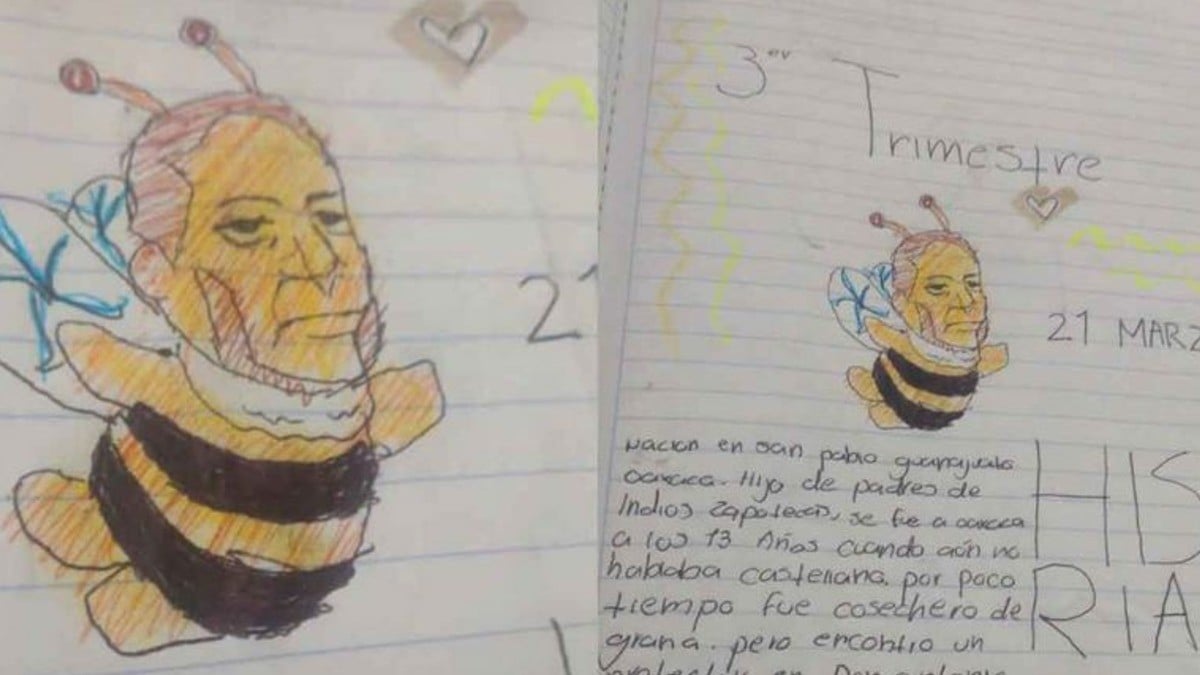 21
3er
Trimestre
21 MARZ
Nacion en san pablo guanajuato
oaxaca. Hijo de padres de
Indios Zapotecas, se fue a oaxaca
a los 13 Años cuando aún no
hablaba castellana. por poco
tiempo fue cosechero de
grana. pero encontro un
HIS
RIA